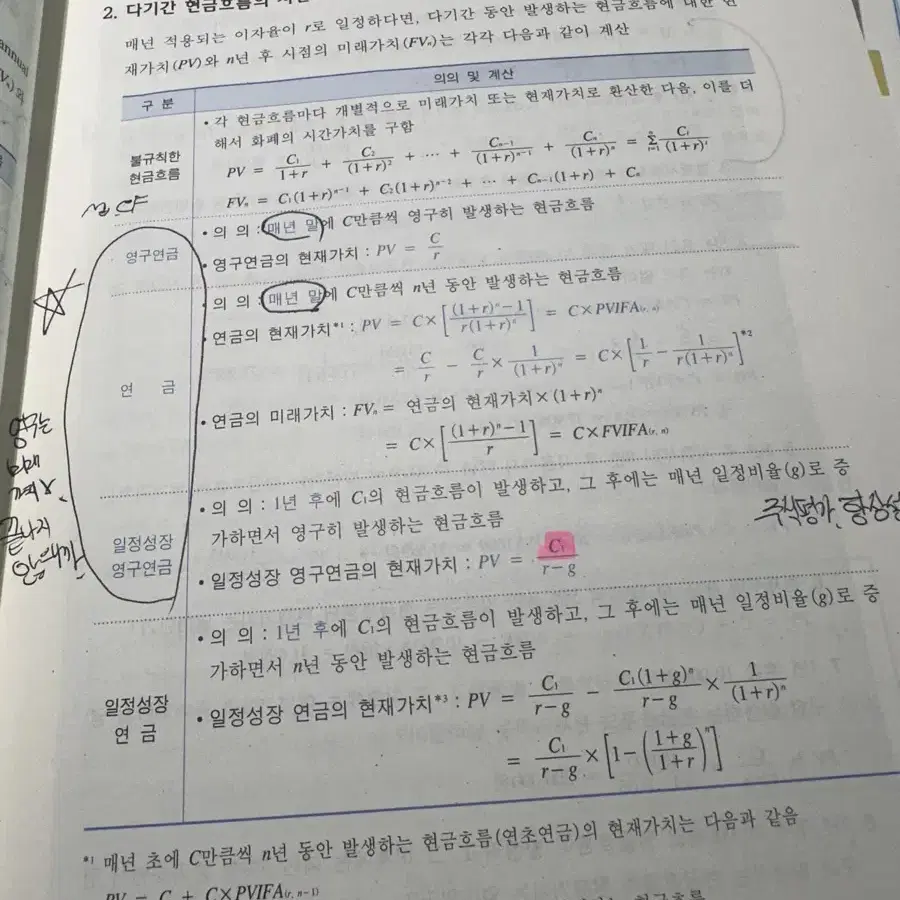 annual
2. 다기간 현금흐름의
매년 적용되는 이자율이 r로 일정하다면, 다기간 동안 발생하는 현금흐름에 대한 현
재가치(PV)와 n년 후 시점의 미래가치(FVₙ)는 각각 다음과 같이 계산
구 분 의의 및 계산
불규칙한 현금흐름
• 각 현금흐름마다 개별적으로 미래가치 또는 현재가치로 환산한 다음, 이를 더
해서 화폐의 시간가치를 구함
PV = C₁/(1+r) + C₂/(1+r)² + ⋯ + Cₙ₋₁/(1+r)ⁿ⁻¹ + Cₙ/(1+r)ⁿ = Σⁿᵢ₌₁ Cᵢ/(1+r)ⁱ
FVₙ = C₁(1+r)ⁿ⁻¹ + C₂(1+r)ⁿ⁻² + ⋯ + Cₙ₋₁(1+r) + Cₙ
CF
영구연금
• 의 의 : 매년 말에 C만큼씩 영구히 발생하는 현금흐름
• 영구연금의 현재가치 : PV = C/r
연 금
• 의 의 : 매년 말에 C만큼씩 n년 동안 발생하는 현금흐름
• 연금의 현재가치*¹ : PV = C×[((1+r)ⁿ−1)/(r(1+r)ⁿ)] = C×PVIFA(r, n)
= C/r − C/r × 1/(1+r)ⁿ = C×[1/r − 1/(r(1+r)ⁿ)]*²
• 연금의 미래가치 : FVₙ = 연금의 현재가치×(1+r)ⁿ
= C×[((1+r)ⁿ−1)/r] = C×FVIFA(r, n)
영구는
미래
끝나지
않으니까
일정성장
영구연금
• 의 의 : 1년 후에 C₁의 현금흐름이 발생하고, 그 후에는 매년 일정비율(g)로 증
가하면서 영구히 발생하는 현금흐름
• 일정성장 영구연금의 현재가치 : PV = C₁/(r−g)
주식평가, 항상
일정성장
연 금
• 의 의 : 1년 후에 C₁의 현금흐름이 발생하고, 그 후에는 매년 일정비율(g)로 증
가하면서 n년 동안 발생하는 현금흐름
• 일정성장 연금의 현재가치*³ : PV = C₁/(r−g) − C₁(1+g)ⁿ/(r−g) × 1/(1+r)ⁿ
= C₁/(r−g) × [1−((1+g)/(1+r))ⁿ]
*¹ 매년 초에 C만큼씩 n년 동안 발생하는 현금흐름(연초연금)의 현재가치는 다음과 같음
PV = C + C×PVIFA(r, n−1)